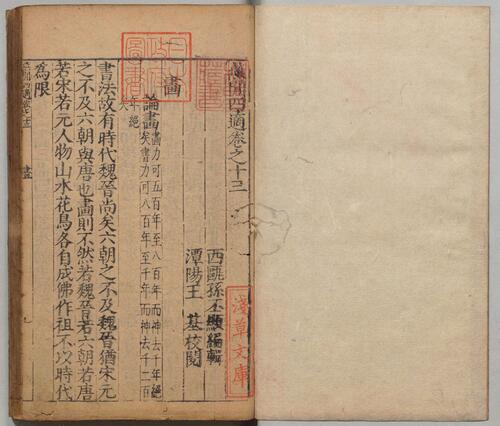 燕閒四適卷之十三
西甌孫丕顯編輯
潭陽王 基校閱
畫
論畫 畫力可五百年至八百年而神去千年絕
矣書力可八百年至千年而神去千二百
年絕
矣
書法故有時代魏晉尚矣六朝之不及魏晉猶宋元
之不及六朝與唐也畫則不然若魏晉若六朝若唐
若宋若元人物山水花鳥各自成佛作祖不以時代
為限
畫
日本
政府
圖書
淺草文庫